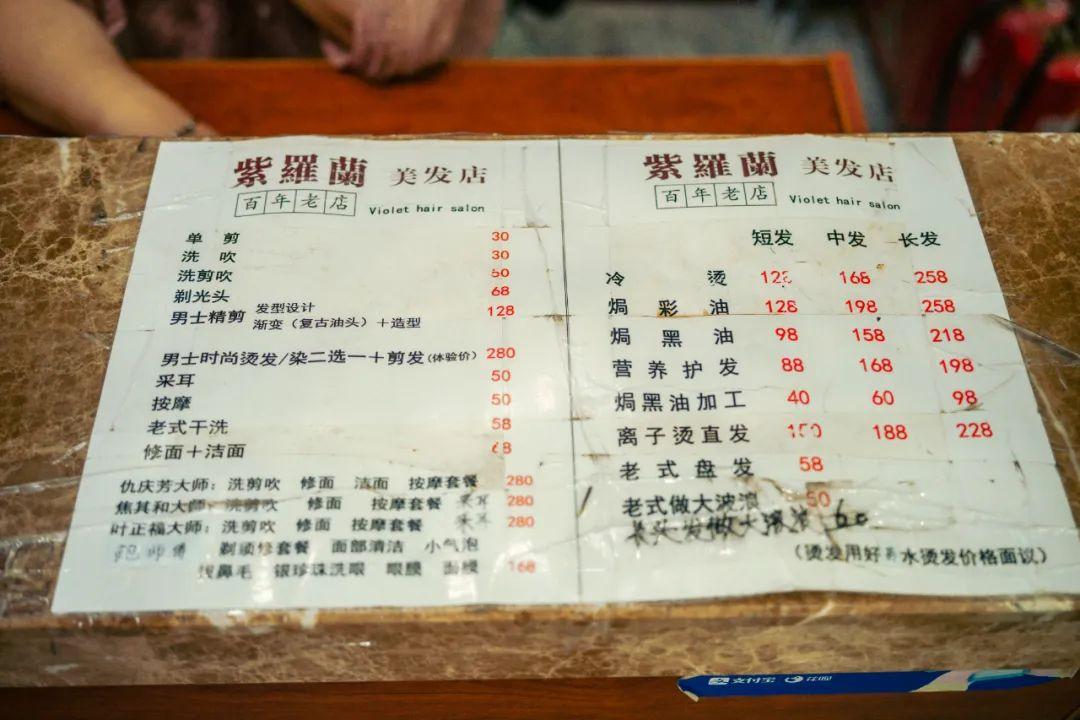 紫羅蘭 美发店
百年老店 Violet hair salon
单剪 30
洗吹 30
洗剪吹 60
剃光头 68
男士精剪 发型设计 128
渐变（复古油头）＋造型
男士时尚烫发/染二选一＋剪发(体验价) 280
采耳 50
按摩 50
老式干洗 58
修面＋洁面 68
仇庆芳大师：洗剪吹 修面 洁面 按摩套餐 280
焦其和大师：洗剪吹 修面 按摩套餐 采耳 280
叶正福大师：洗剪吹 修面 按摩套餐 采耳 280
剃须修套餐 面部清洁 小气泡
鼻毛 银珍珠洗眼 眼膜 面膜 168
紫羅蘭 美发店
百年老店 Violet hair salon
短发 中发 长发
冷烫 128 168 258
焗彩油 128 198 258
焗黑油 98 158 218
营养护发 88 168 198
焗黑油加工 40 60 98
离子烫直发 188 228
老式盘发 58
老式做大波浪 50
长头发做大波浪 60
（烫发用好 水烫发价格面议）
支付宝